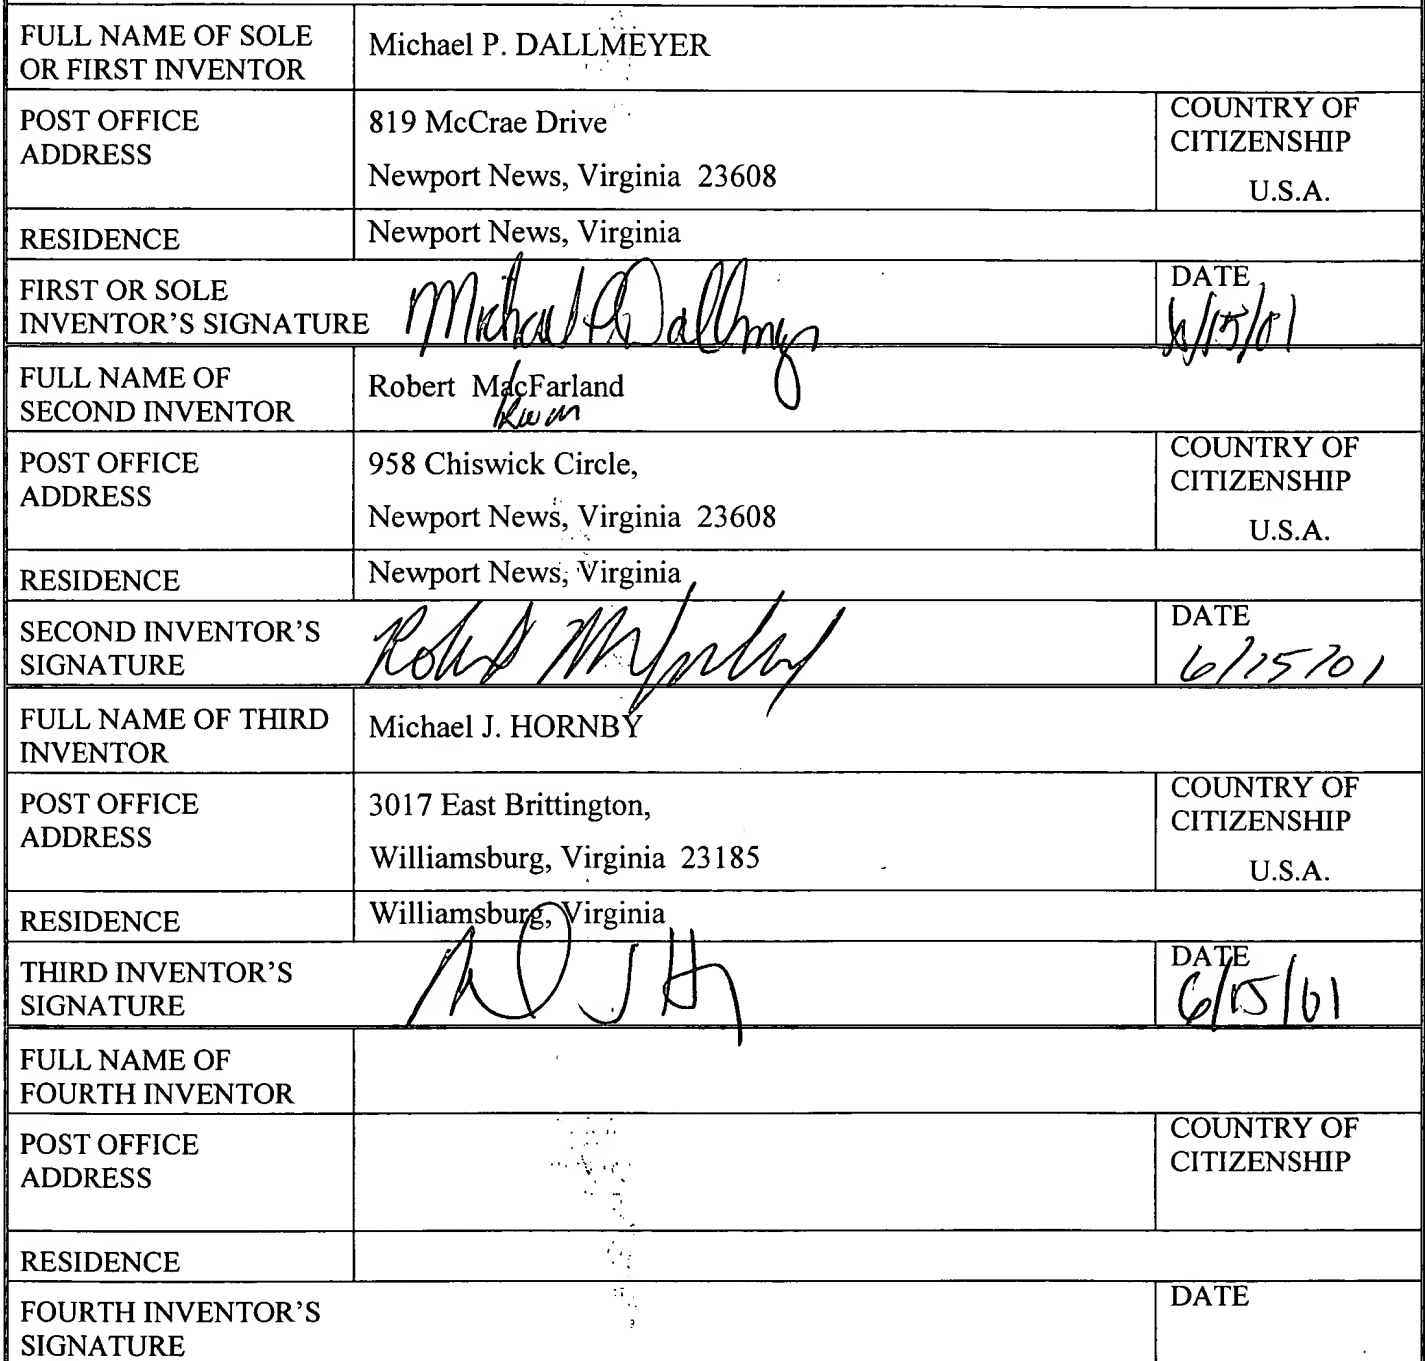 FULL NAME OF SOLE
OR FIRST INVENTOR
Michael P. DALLMEYER
POST OFFICE
ADDRESS
819 McCrae Drive
Newport News, Virginia 23608
COUNTRY OF
CITIZENSHIP
U.S.A.
RESIDENCE
Newport News, Virginia
FIRST OR SOLE
INVENTOR'S SIGNATURE
Michael P Dallmeyer
DATE
6/15/01
FULL NAME OF
SECOND INVENTOR
Robert MacFarland
rwm
POST OFFICE
ADDRESS
958 Chiswick Circle,
Newport News, Virginia 23608
COUNTRY OF
CITIZENSHIP
U.S.A.
RESIDENCE
Newport News, Virginia
SECOND INVENTOR'S
SIGNATURE
Robert
DATE
6/15/01
FULL NAME OF THIRD
INVENTOR
Michael J. HORNBY
POST OFFICE
ADDRESS
3017 East Brittington,
Williamsburg, Virginia 23185
COUNTRY OF
CITIZENSHIP
U.S.A.
RESIDENCE
Williamsburg, Virginia
THIRD INVENTOR'S
SIGNATURE
DATE
6/15/01
FULL NAME OF
FOURTH INVENTOR
POST OFFICE
ADDRESS
COUNTRY OF
CITIZENSHIP
RESIDENCE
FOURTH INVENTOR'S
SIGNATURE
DATE